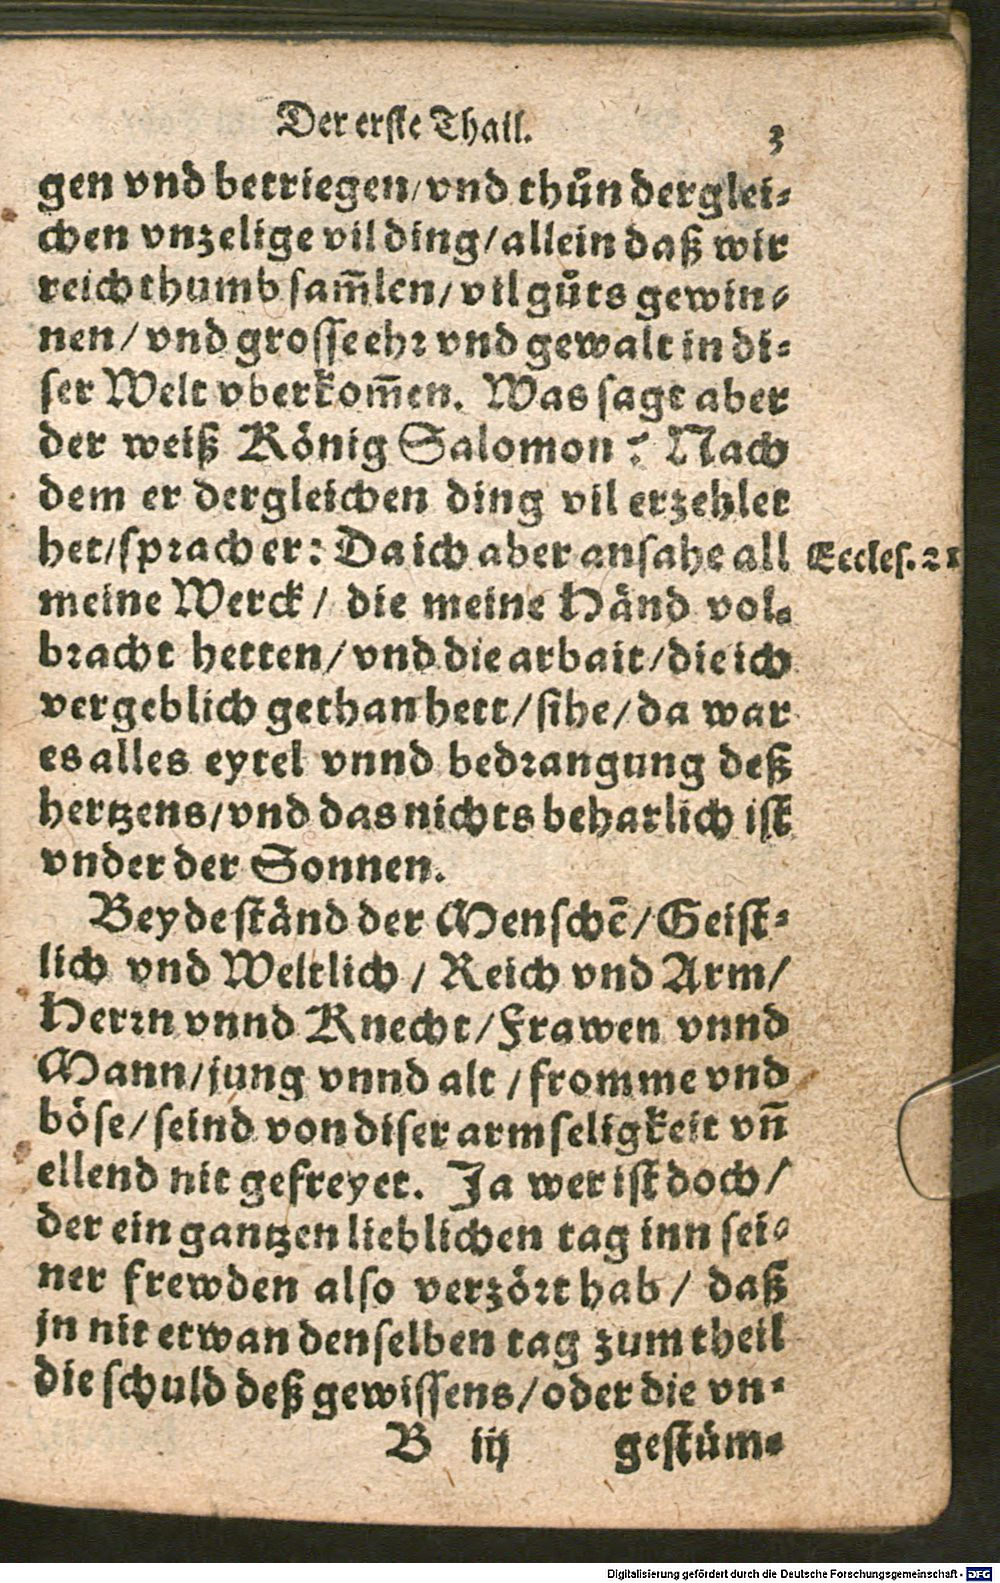 Der erſte Thail. 3
gen vnd betriegen/vnd thůn derglei⸗
chen vnzelige vil ding/allein daß wir
reichthumb sam̃len/vil gůts gewin⸗
nen/vnd groſſe ehꝛ vnd gewalt in di⸗
ſer Welt vberkom̃en. Was ſagt aber
der weiß König Salomon? Nach
dem er dergleichen ding vil erzehlet
het/ſpꝛach er: Da ich aber anſahe all
Eccles. 2
meine Werck/ die meine Händ vol⸗
bꝛacht hetten/vnd die arbait/die ich
vergeblich gethan hett/ſihe/da war
es alles eytel vnnd bedꝛangung deß
hertzens/vnd das nichts beharlich iſt
vnder der Sonnen.
Beyde ſtänd der Menſchē/Geiſt⸗
lich vnd Weltlich/Reich vnd Arm/
Herꝛn vnnd Knecht/Frawen vnnd
Mann/jung vnnd alt/fromme vnd
böſe/ſeind von diſer armſeligkeit vñ
ellend nit gefreyet. Ja wer iſt doch/
der ein gantzen lieblichen tag inn ſei⸗
ner frewden alſo verzöꝛt hab/ daß
jn nit etwan denſelben tag zum theil
die ſchuld deß gewiſſens/oder die vn⸗
B iij geſtüm⸗
Digitalisierung gefördert durch die Deutsche Forschungsgemeinschaft - DFG